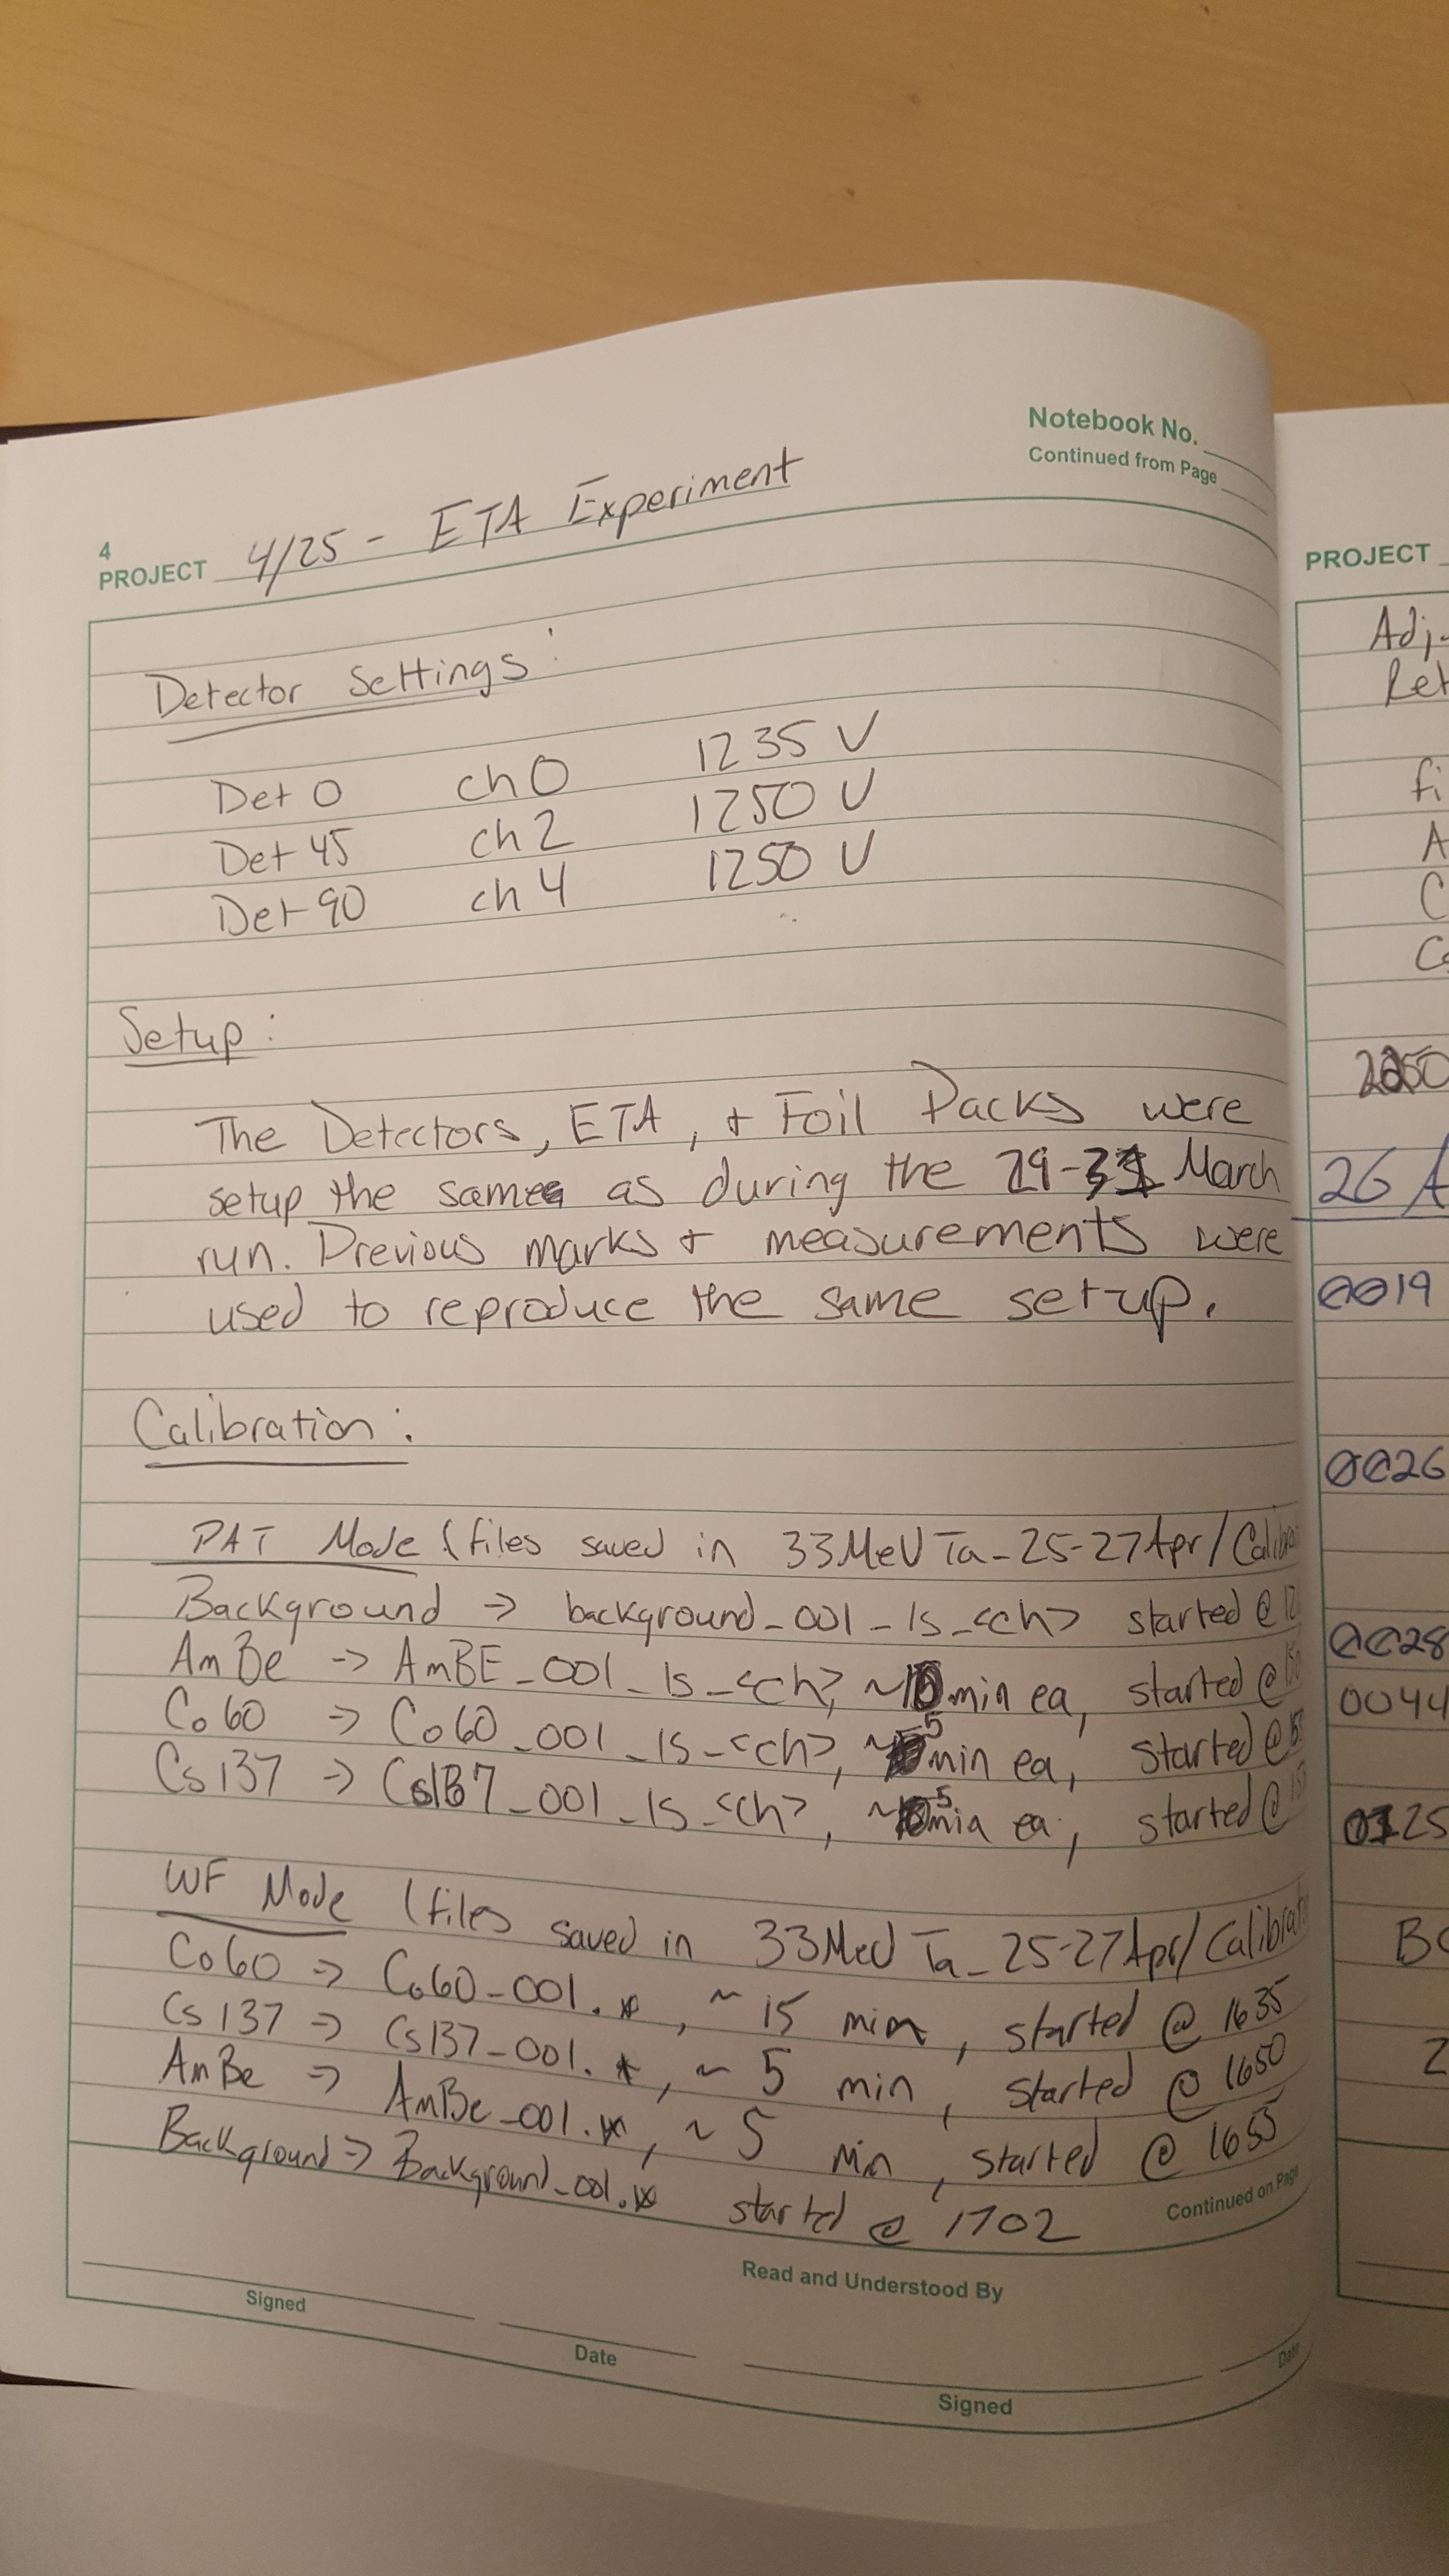 Notebook No.
Continued from Page
4
PROJECT 4/25 - ETA Experiment
Detector Settings:
Det 0 ch 0 1235 V
Det 45 ch 2 1250 V
Det 90 ch 4 1250 V
Setup:
The Detectors, ETA, + Foil Packs were
setup the same as during the 29-31 March
run. Previous marks + measurements were
used to reproduce the same set-up.
Calibration:
PAT Mode (files saved in 33MeVTa_25-27Apr/
Background -> background_001_ls_<ch> started @
AmBe -> AmBE_001_ls_<ch>, ~10 min ea, started @
Co60 -> Co60_001_ls_<ch>, ~5 min ea, started @
Cs137 -> Cs137_001_ls_<ch>, ~5 min ea, started @
WF Mode (files saved in 33MeVTa_25-27Apr/
Co60 => Co60_001.*, ~ 15 min, started @ 1635
Cs137 => Cs137_001.*, ~ 5 min, started @ 1650
AmBe => AmBe_001.*, ~ 5 min, started @ 1655
Background => Background_001.* started @ 1702
Continued on Page
Read and Understood By
Signed
Date
Signed
PROJECT
26
0019
0026
0028
0044
0125